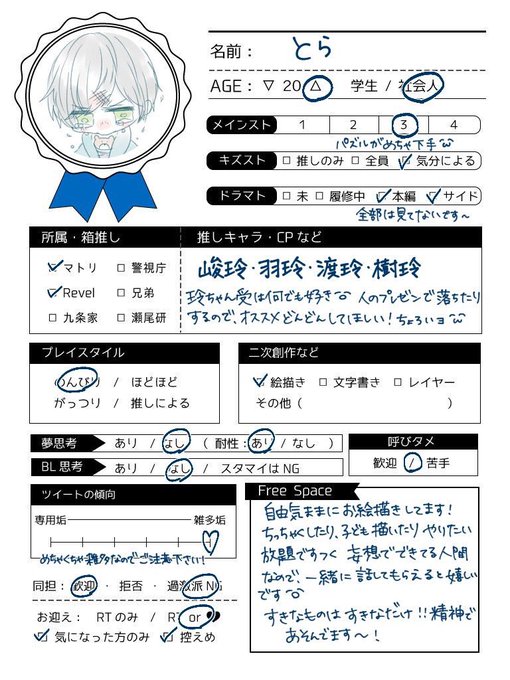 名前： とら
AGE： ▽ 20 △ 学生 / 社会人
メインスト 1 2 3 4
パズルがめちゃ下手
キズスト □ 推しのみ □ 全員 □ 気分による
ドラマト □ 未 □ 履修中 □ 本編 □ サイド
全部は見てないです〜
所属・箱推し
□ マトリ □ 警視庁
□ Revel □ 兄弟
□ 九条家 □ 瀬尾研
推しキャラ・CP など
峻玲・羽玲・渡玲・樹玲
玲ちゃん受は何でも好き 人のプレゼンで落ちたり
するので、オススメどんどんしてほしい！ちょろいョ
プレイスタイル
のんびり / ほどほど
がっつり / 推しによる
二次創作など
□ 絵描き □ 文字書き □ レイヤー
その他（ ）
夢思考 あり / なし （ 耐性：あり / なし ）
BL思考 あり / なし / スタマイは NG
呼びタメ
歓迎 / 苦手
ツイートの傾向
専用垢 雑多垢
めちゃくちゃ雑多なのでご注意下さい！
同担： 歓迎 ・ 拒否 ・ 過激派 NG
お迎え： RT のみ / RT or
□ 気になった方のみ □ 控えめ
Free Space
自由気ままにお絵描きしてます！
ちっちゃくしたり、子ども描いたりやりたい
放題ですっ 妄想でできてる人間
なので、一緒に話してもらえると嬉しい
です
すきなものは すきなだけ!!精神で
あそんでます〜！